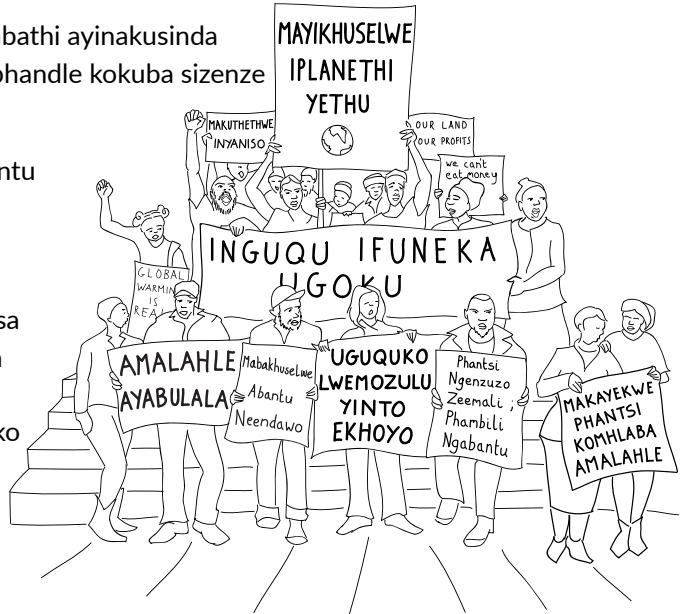 abathi ayinakusinda
phandle kokuba sizenze
ntu
sa
ko
MAYIKHUSELWE
IPLANETHI
YETHU
MAKUTHETHWE
INYANISO
OUR LAND
OUR PROFITS
we can't
eat money
INGUQU IFUNEKA
UGOKU
GLOBAL
WARMING
IS
REAL
AMALAHLE
AYABULALA
Mabakhuselwe
Abantu
Neendawo
UGUQUKO
LWEMOZULU
YINTO
EKHOYO
Phantsi
Ngenzuzo
Zeemali ;
Phambili
Ngabantu
MAKAYEKWE
PHANTSI
KOMHLABA
AMALAHLE